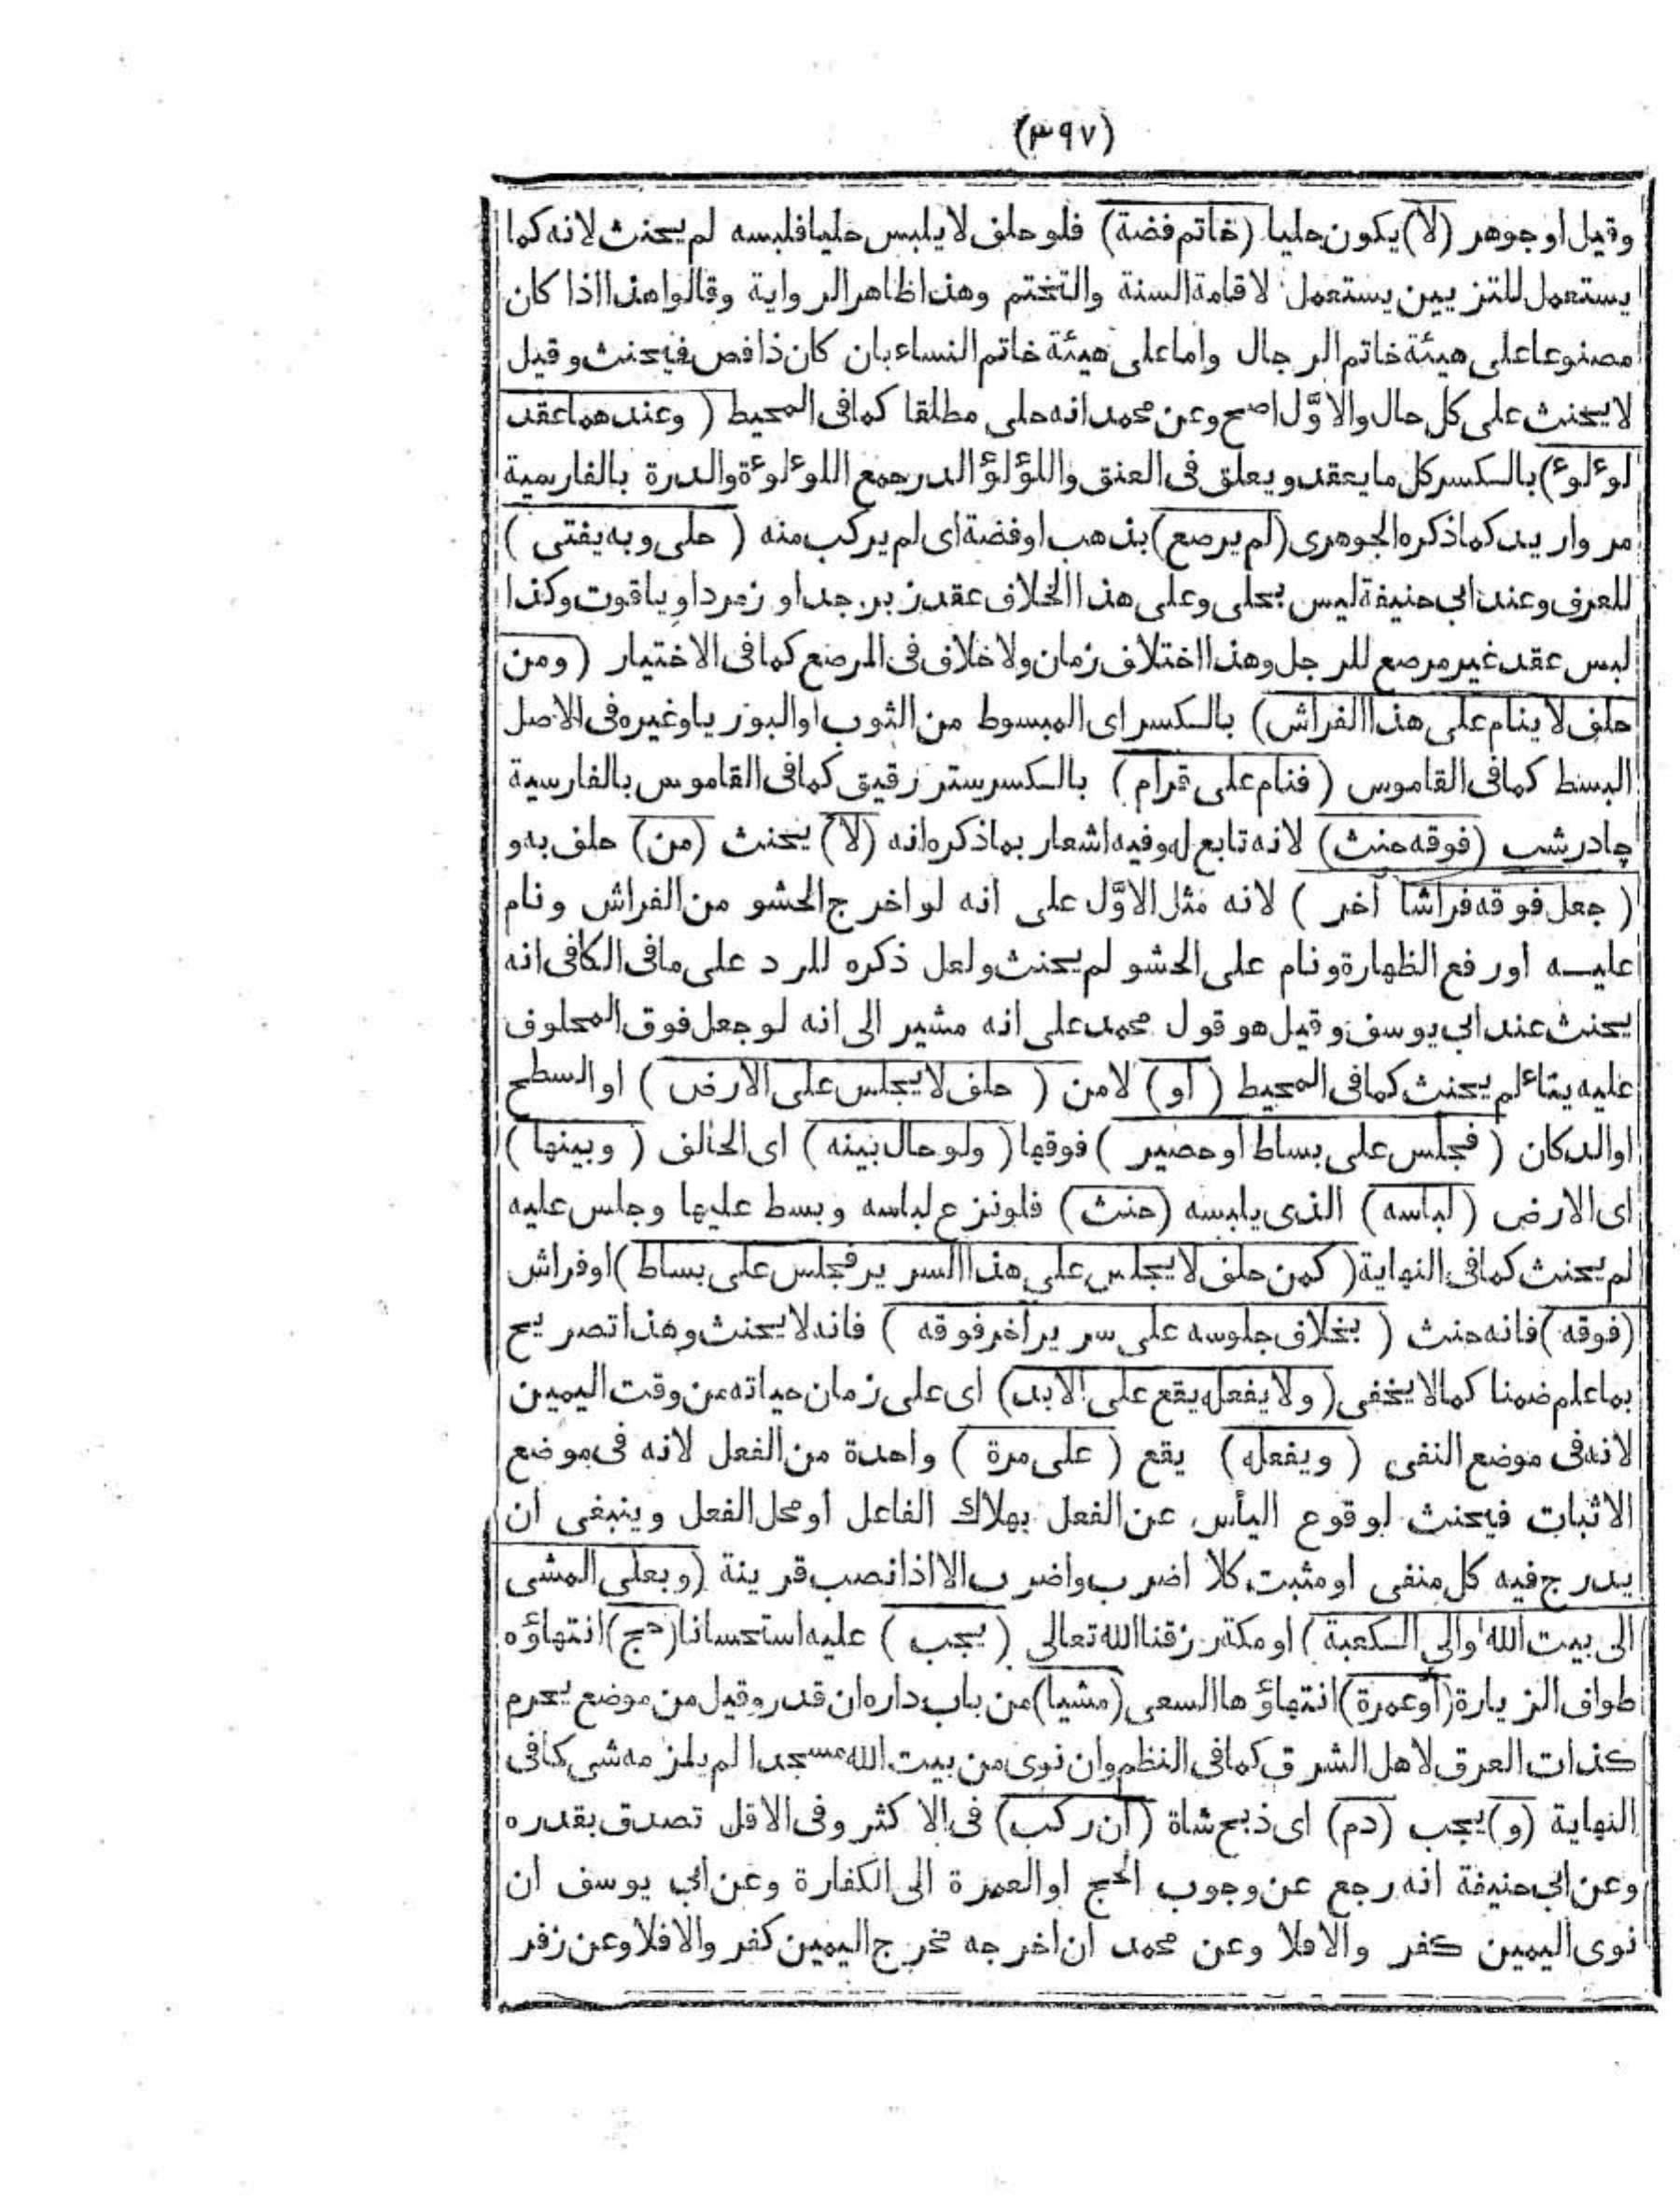 (٣٩٧)
وقيل او جوهر (لا) يكون حليا (خاتم فضة) فلو حلف لا يلبس حليا فلبسه لم يحنث لانه كما
يستعمل للتزيين يستعمل لاقامة السنة والتختم وهذا ظاهر الرواية وقالوا هذا اذا كان
مصنوعا على هيئة خاتم الرجال واما على هيئة خاتم النساء بان كان ذا فص فيحنث وقيل
لا يحنث على كل حال والاوّل اصح وعن محمد انه حلى مطلقا كما فى المحيط (وعندهما عقد
لوءلوء) بالكسر كل ما يعقد ويعلق فى العنق واللؤلؤ الدر جمع اللوءلوءة والدرة بالفارسية
مرواريد كما ذكره الجوهرى (لم يرصع) بذهب او فضة اى لم يركب منه (حلى وبه يفتى)
للعرف وعند ابى حنيفة ليس بحلى وعلى هذا الخلاف عقد زبرجد او زمرد او ياقوت وكذا
لبس عقد غير مرصع للرجل وهذا اختلاف زمان ولا خلاف فى المرصع كما فى الاختيار (ومن
حلف لا ينام على هذا الفراش) بالكسر اى المبسوط من الثوب او البوزيا وغيره فى الاصل
البسط كما فى القاموس (فنام على قرام) بالكسر ستر رقيق كما فى القاموس بالفارسية
چادرشب (فوقه حنث) لانه تابع له وفيه اشعار بما ذكره انه (لا) يحنث (من) حلف به و
(جعل فوقه فراشا آخر) لانه مثل الاوّل على انه لو اخرج الحشو من الفراش ونام
عليه او رفع الظهارة ونام على الحشو لم يحنث ولعل ذكره للرد على ما فى الكافى انه
يحنث عند ابى يوسف وقيل هو قول محمد على انه مشير الى انه لو جعل فوق المحلوف
عليه يتاء لم يحنث كما فى المحيط (او) لا من (حلف لا يجلس على الارض) او السطح
او الدكان (فجلس على بساط او حصير) فوقها (ولو حال بينه) اى الحالف (وبينها)
اى الارض (لباسه) الذى يلبسه (حنث) فلو نزع لباسه وبسط عليها وجلس عليه
لم يحنث كما فى النهاية (كمن حلف لا يجلس على هذا السرير فجلس على بساط) او فراش
(فوقه) فانه حنث (بخلاف جلوسه على سرير اخر فوقه) فانه لا يحنث وهذا تصريح
بما علم ضمنا كما لا يخفى (ولا يفعله يقع على الابد) اى على زمان حياته من وقت اليمين
لانه فى موضع النفى (ويفعله) يقع (على مرة) واحدة من الفعل لانه فى موضع
الاثبات فيحنث لوقوع اليأس عن الفعل بهلاك الفاعل او محل الفعل وينبغى ان
يدرج فيه كل منفى او مثبت كلا اضرب واضرب الا اذا نصب قرينة (وبعلى المشى
الى بيت الله او الى الكعبة) او مكة رزقنا الله تعالى (يجب) عليه استحسانا (حج) انتهاؤه
طواف الزيارة (او عمرة) انتهاؤها السعى (مشيا) من باب داره ان قدر وقيل من موضع يحرم
كذات العرق لاهل الشرق كما فى النظم وان نوى من بيت الله مسجدا لم يلزمه شى كما فى
النهاية (و) يجب (دم) اى ذبح شاة (ان ركب) فى الاكثر وفى الاقل تصدق بقدره
وعن ابى حنيفة انه رجع عن وجوب الحج او العمرة الى الكفارة وعن ابى يوسف ان
نوى اليمين كفر والا فلا وعن محمد ان اخرجه مخرج اليمين كفر والا فلا وعن زفر